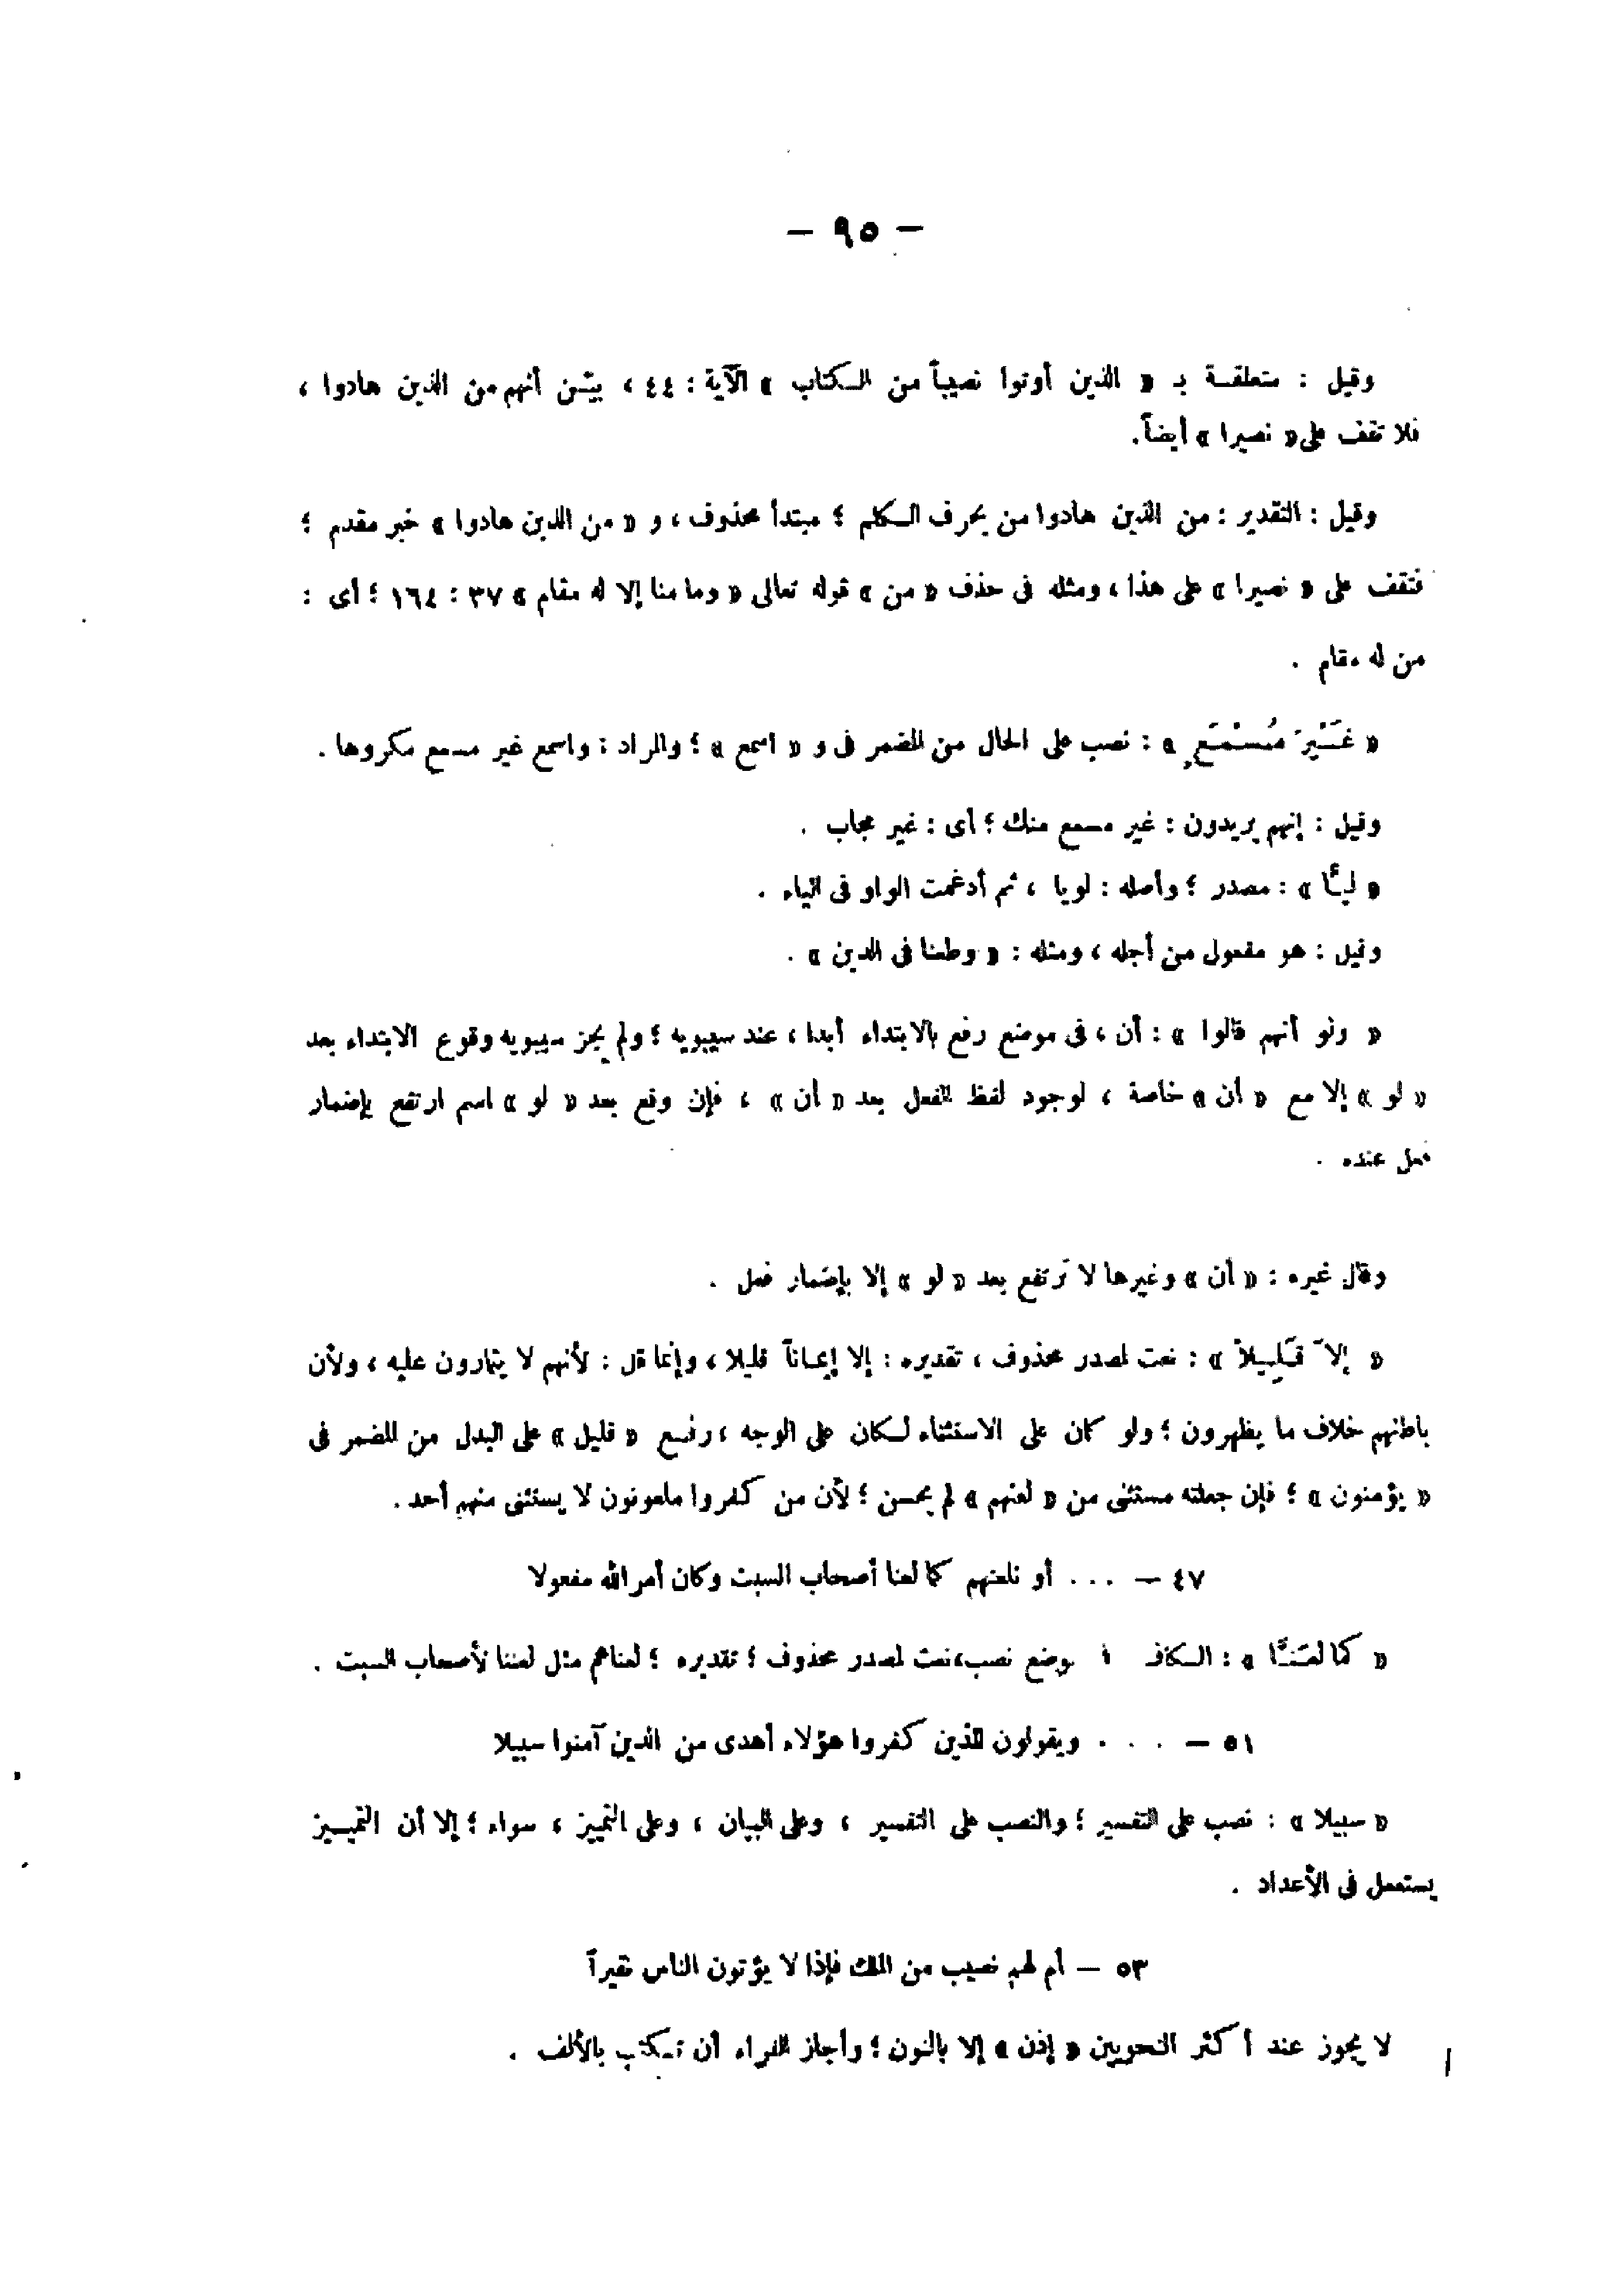 — ٩٥ —
وقيل : متعلقة بـ « الذين أوتوا نصيباً من الكتاب » الآية : ٤٤ ، بيّن أنهم من الذين هادوا ،
فلا تقف على « نصيرا » أيضاً .
وقيل : التقدير : من الذين هادوا من يحرف الكلم ؛ مبتدأ محذوف ، و « من الذين هادوا » خبر مقدم ؛
فتقف على « نصيرا » على هذا ، ومثله فى حذف « من » قوله تعالى « وما منا إلا له مقام » ٣٧ : ١٦٤ ؛ أى :
من له مقام .
« غَيْرَ مُسْمَعٍ » : نصب على الحال من المضمر فى و « اسمع » ؛ والمراد : واسمع غير مسمع مكروها .
وقيل : إنهم يريدون : غير مسمع منك ؛ أى : غير مجاب .
« ليًّا » : مصدر ؛ وأصله : لويا ، ثم أدغمت الواو فى الياء .
وقيل : هو مفعول من أجله ، ومثله : « وطعنا فى الدين » .
« ولو أنهم قالوا » : أن ، فى موضع رفع بالابتداء أبدا ، عند سيبويه ؛ ولم يجز سيبويه وقوع الابتداء بعد
« لو » إلا مع « أن » خاصة ، لوجود لفظ الفعل بعد « أن » ، فإن وقع بعد « لو » اسم ارتفع بإضمار
فعل عنده .
وقال غيره : « أن » وغيرها لا ترتفع بعد « لو » إلا بإضمار فعل .
« إلاَّ قَلِيلاً » : نعت لمصدر محذوف ، تقديره : إلا إيماناً قليلا ، وإنما قل : لأنهم لا يتمارون عليه ، ولأن
باطنهم خلاف ما يظهرون ؛ ولو كان على الاستثناء لكان على الوجه ، رفع « قليل » على البدل من المضمر فى
« يؤمنون » ؛ فإن جعلته مستثنى من « لعنهم » لم يحسن ؛ لأن من كفروا ملعونون لا يستثنى منهم أحد .
٤٧ — . . . أو نلعنهم كما لعنا أصحاب السبت وكان أمر الله مفعولا
« كما لعَنَّا » : الكاف فى موضع نصب، نعت لمصدر محذوف ؛ تقديره ؛ لعناهم مثل لعننا لأصحاب السبت .
٥١ — . . . . ويقولون للذين كفروا هؤلاء أهدى من الذين آمنوا سبيلا
« سبيلا » : نصب على التفسير ؛ والنصب على التفسير ، وعلى البيان ، وعلى التمييز ، سواء ؛ إلا أن التمييز
يستعمل فى الأعداد .
٥٣ — أم لهم نصيب من الملك فإذا لا يؤتون الناس نقيراً
لا يجوز عند أكثر النحويين « إذن » إلا بالنون ؛ وأجاز الفراء أن تكتب بالألف .